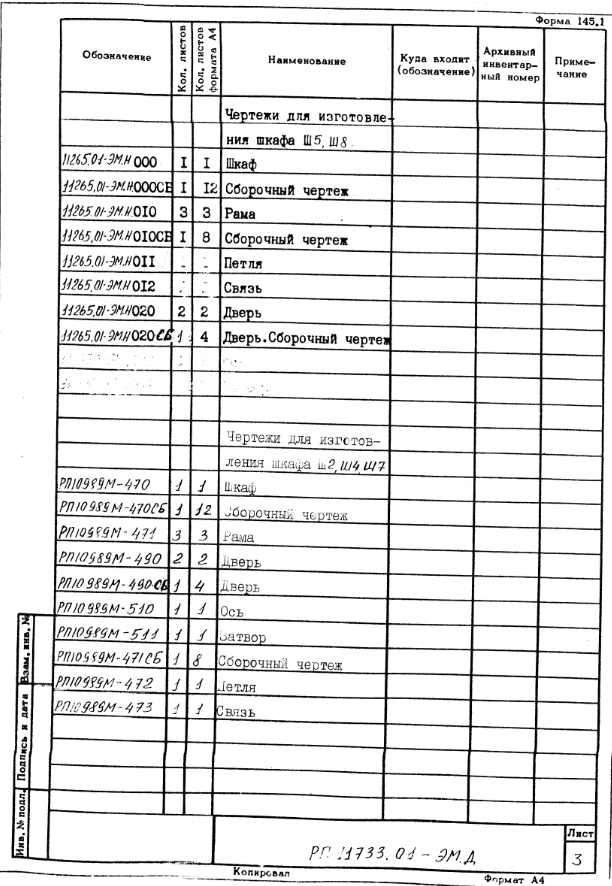 Форма 145.1
Обозначение Кол. листов Кол. листов формата А4 Наименование Куда входит (обозначение) Архивный инвентарный номер Примечание
Чертежи для изготовле-
ния шкафа Ш5, Ш8
11265.01-ЭМ.И000 I I Шкаф
11265.01-ЭМ.И000СБ I I2 Сборочный чертеж
11265.01-ЭМ.И0I0 3 3 Рама
11265.01-ЭМ.И0I0СБ I 8 Сборочный чертеж
11265.01-ЭМ.И0II Петля
11265.01-ЭМ.И0I2 Связь
11265.01-ЭМ.И020 2 2 Дверь
11265.01-ЭМ.И020СБ 1 4 Дверь.Сборочный чертеж
Чертежи для изготов-
ления шкафа Ш2, Ш4, Ш7
РП10989М-470 1 1 Шкаф
РП10989М-470СБ 1 12 Сборочный чертеж
РП10989М-471 3 3 Рама
РП10989М-490 2 2 Дверь
РП10989М-490СБ 1 4 Дверь
РП10989М-510 1 1 Ось
РП10989М-511 1 1 Затвор
РП10989М-471СБ 1 8 Сборочный чертеж
РП10989М-472 1 1 Петля
РП10989М-473 1 1 Связь
Взам. инв. №
Подпись и дата
Инв. № подл.
РП 11733.01-ЭМ.Д
Лист
3
Копировал
Формат А4